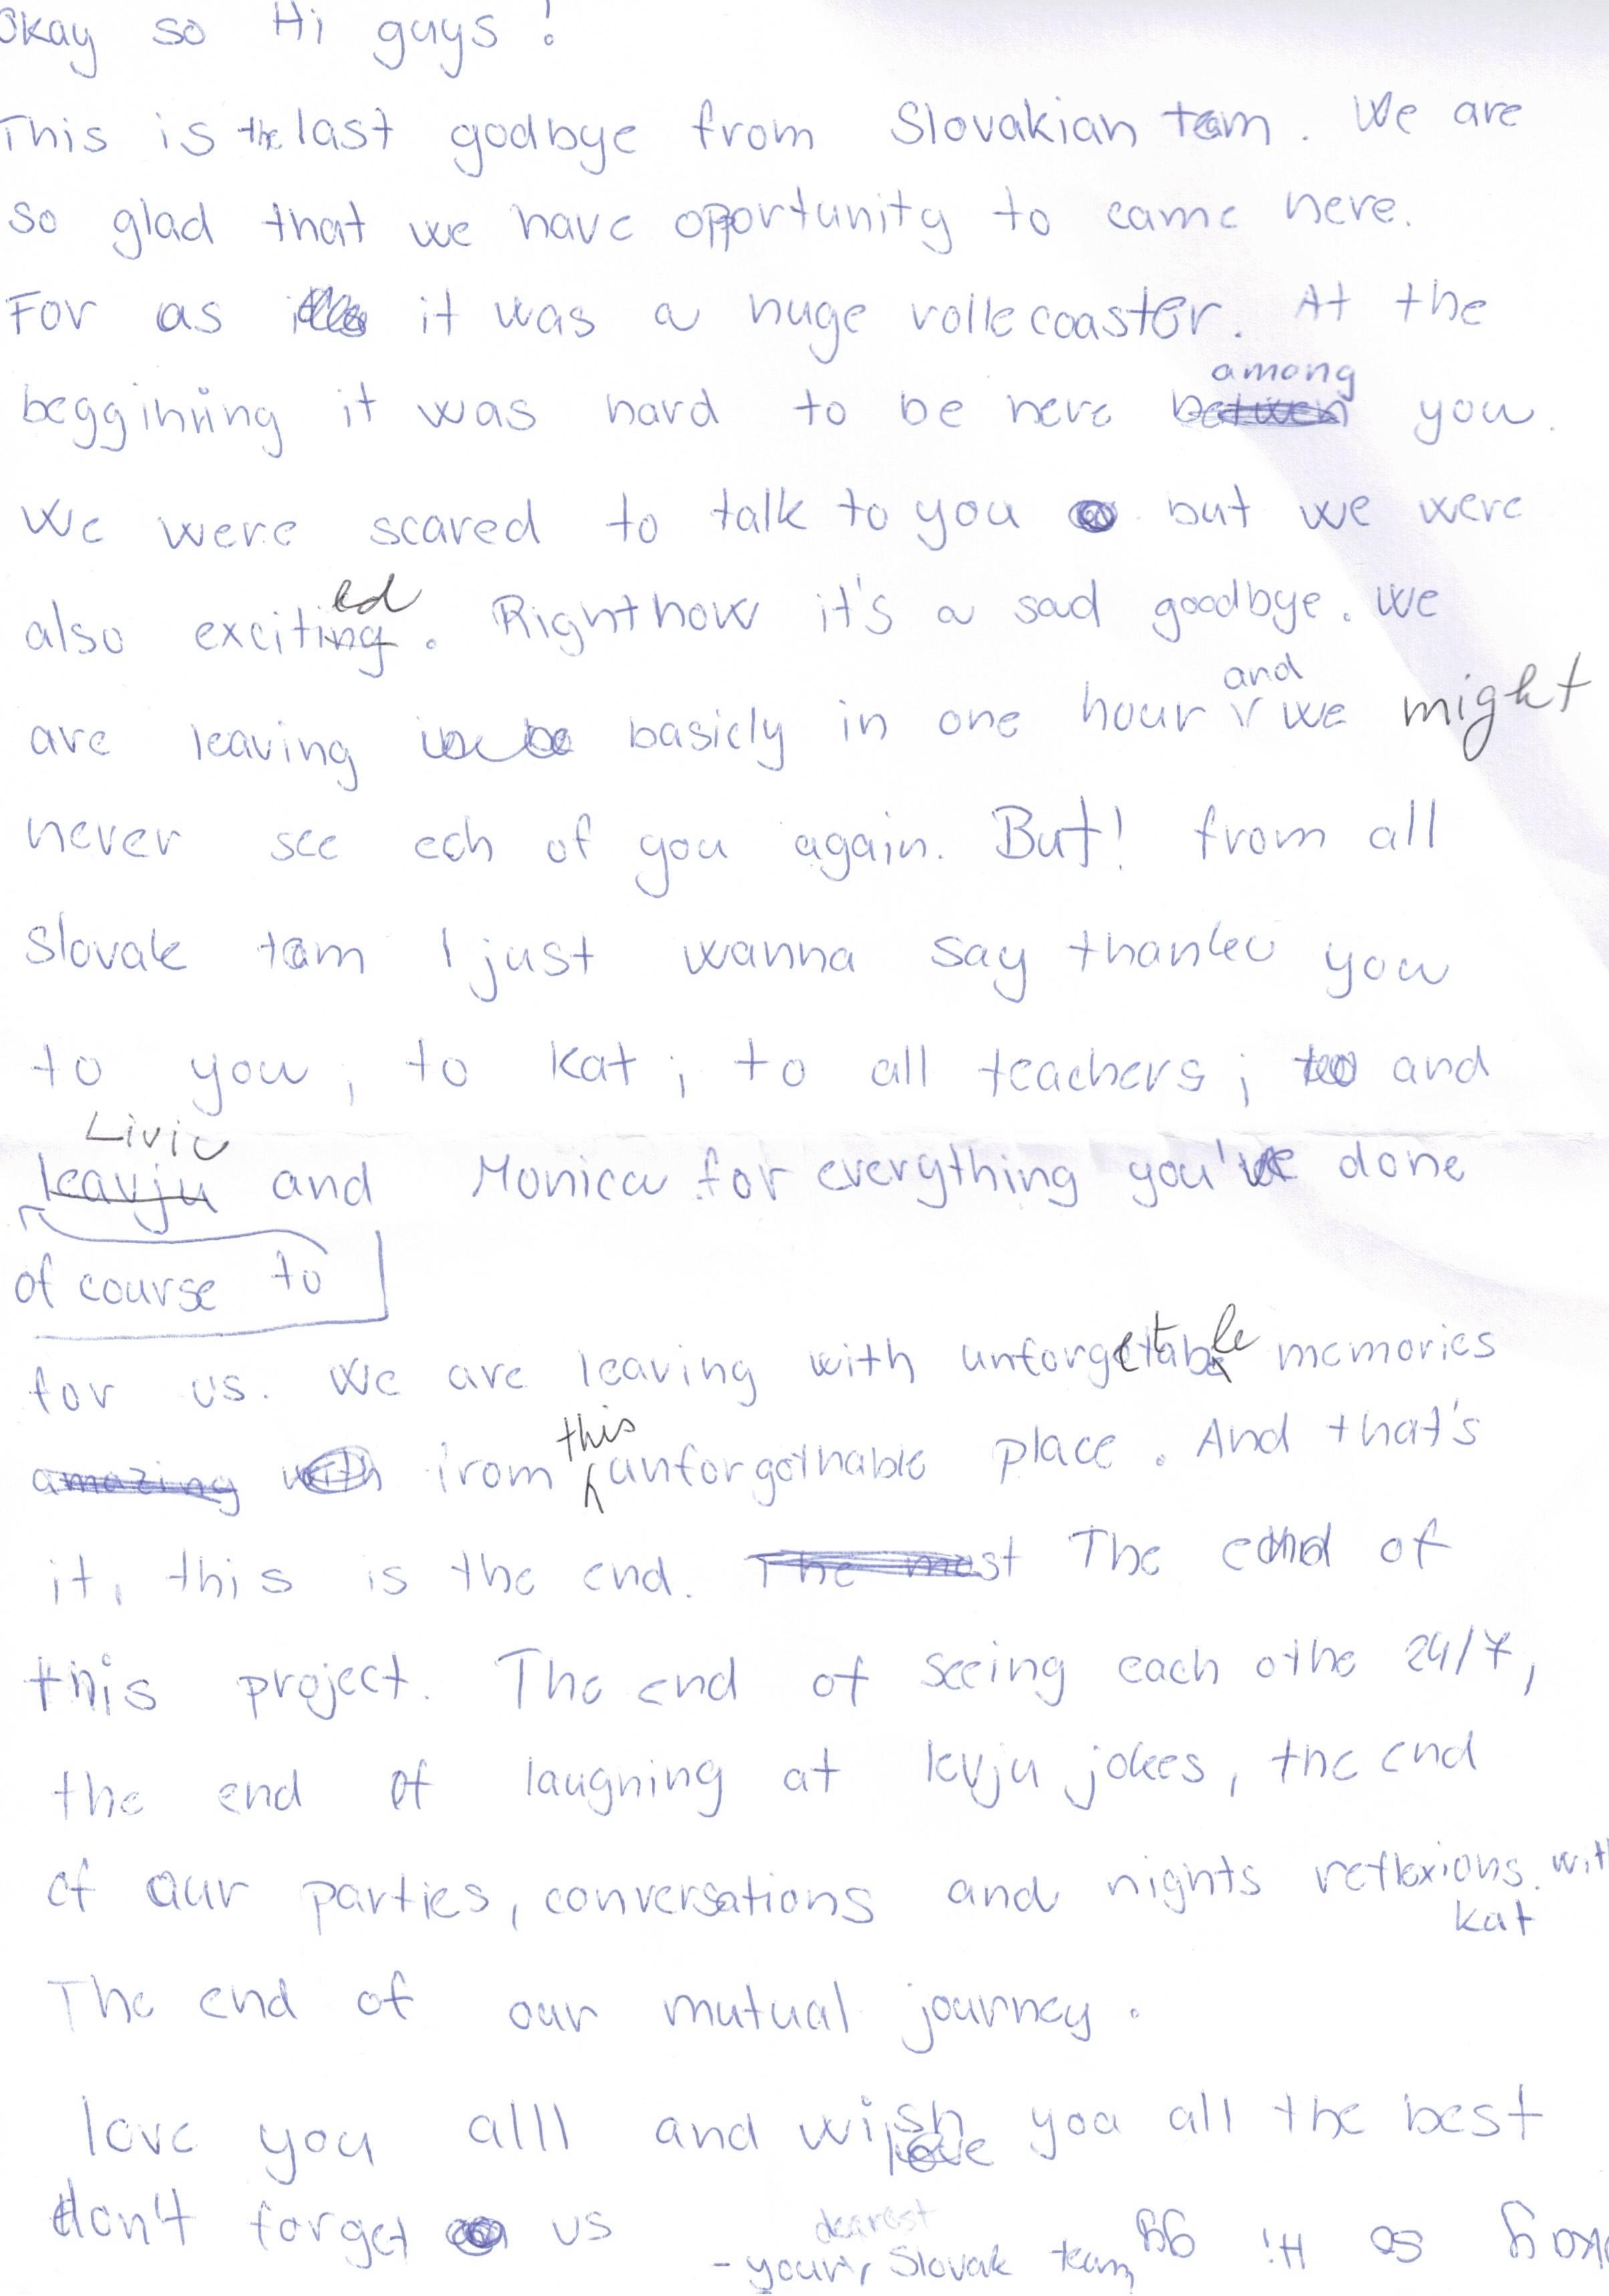 Okay so Hi guys!
This is the last goodbye from Slovakian team. We are
so glad that we have opportunity to came here.
For as it was a huge rollecoaster. At the
beggining it was hard to be here among you.
betwen
We were scared to talk to you but we were
also exciting. Right now it's a sad goodbye. We
ed
are leaving basicly in one hour and we might
never see ech of you again. But! from all
Slovak team I just wanna say thank you
to you, to Kat, to all teachers, and
Liviu
leavju and Monica for everything you've done
of course to
for us. We are leaving with unforgetable memories
amazing with from this unforgotnable place. And that's
it, this is the end. The most The end of
this project. The end of seeing each othe 24/7,
the end of laughing at levju jokes, the end
of our parties, conversations and nights reflexions. with
kat
The end of our mutual journey.
love you alll and wish you all the best
love
don't forget us
dearest
- your, Slovak team
Okay so Hi gg